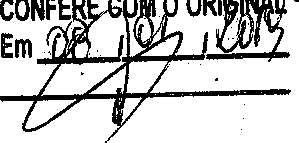 CONFERE COM O ORIGINAL
Em 08, 01, 2019